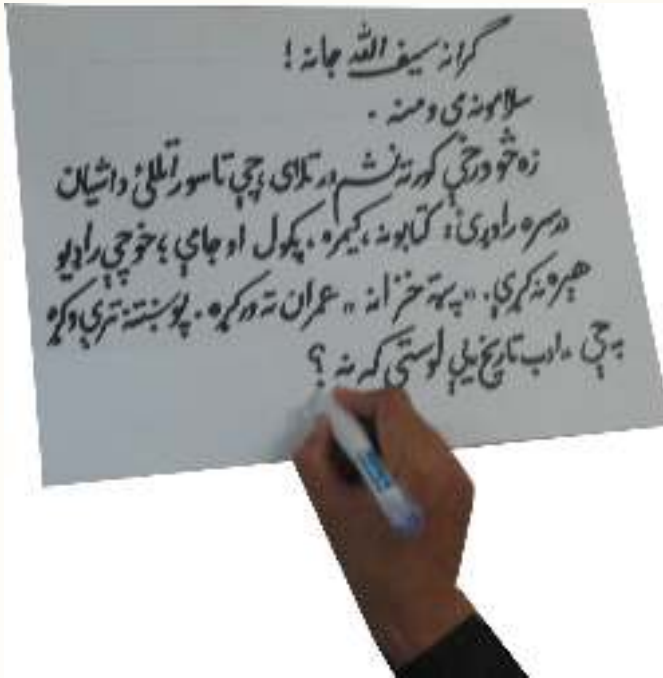 ګرانه سیف الله جانه!
سلامونه دی ومنه.
زه خو درځې کورته نشم درتلای، چې تاسو راتللئ دا شیان
درسره راوړئ: کتابونه، کیمره، پکول او جامې؛ خو چې راډیو
هېره نه کړې. «پټه خزانه» عمران ته ورکړه. پوښتنه ترې وکړه
چې «ادب تاریخ یې لوستی که نه؟